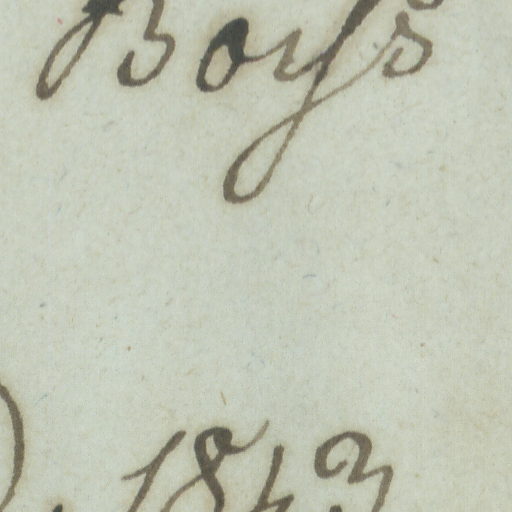 Boys
1843